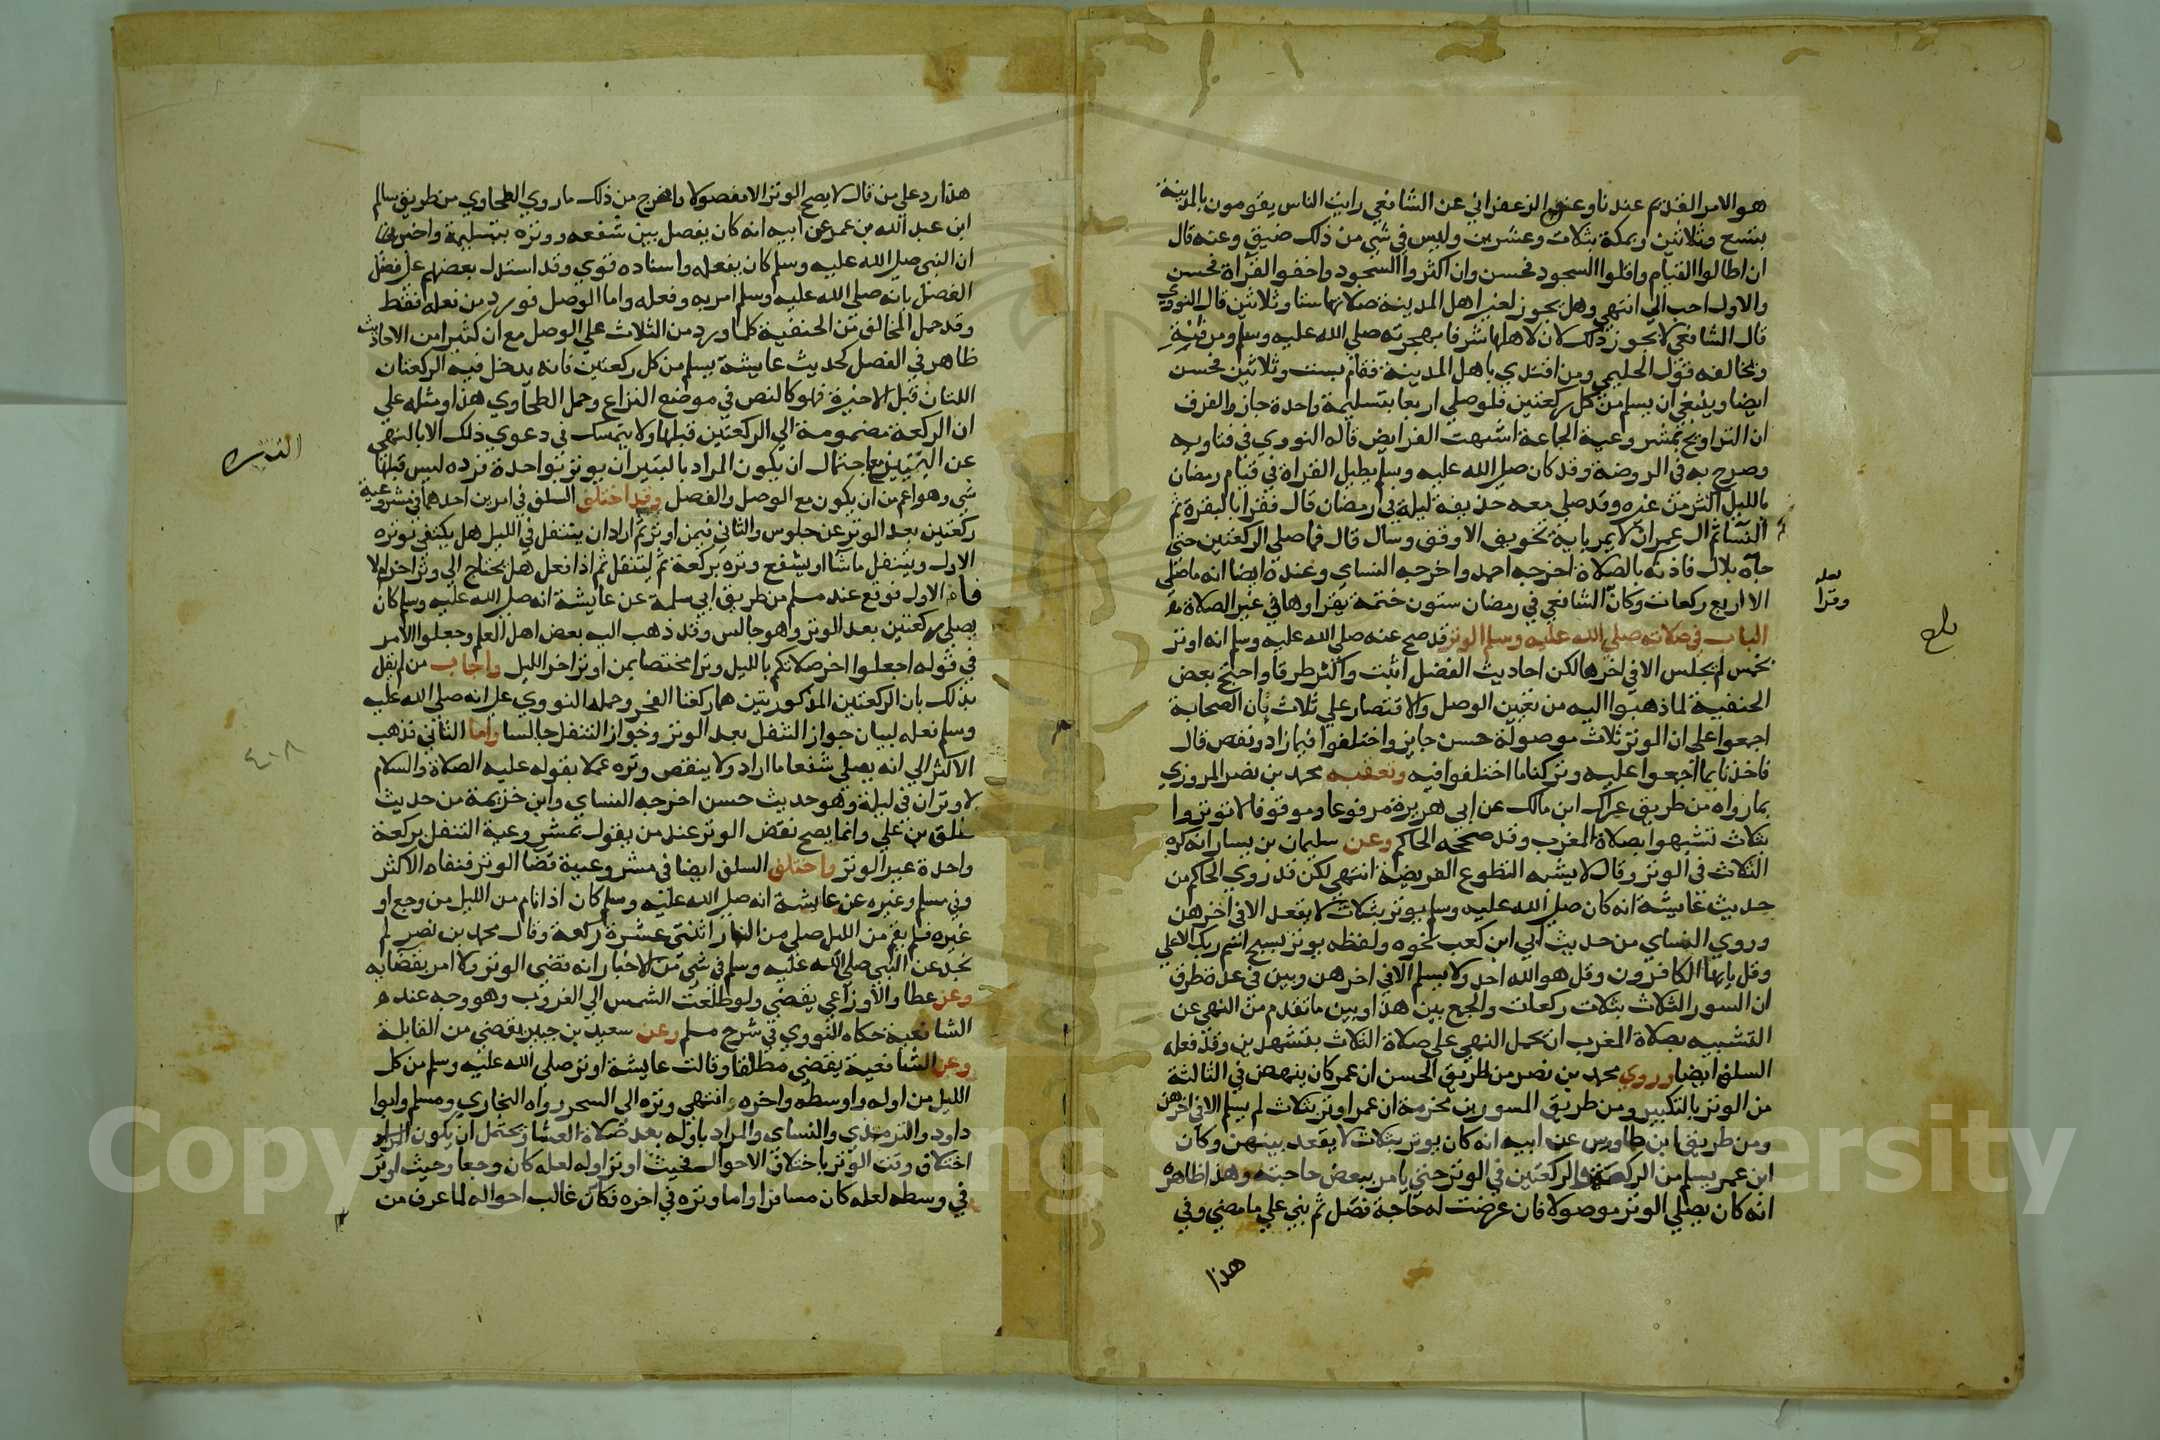 هو الامر القديم عندنا وعن الزعفراني عن الشافعي رايت الناس يقومون بالمدينة
بتسع وثلاثين وبمكة بثلاث وعشرين وليس في شي من ذلك ضيق وعنه قال
ان اطالوا القيام واقلوا السجود فحسن وان اكثروا السجود واخفوا القراة فحسن
والاول احب الي انتهي وهل يجوز لغير اهل المدينة صلاتها ستا وثلاثين قال النووي
قال الشافعي لا يجوز ذلك لان لاهلها شرفا بهجرته صلي الله عليه وسلم ومن ثم
ويخالفه قول الحليمي ومن اقتدي باهل المدينة فقام بست وثلاثين فحسن
ايضا وينبغي ان يسلم من كل ركعتين فلو صلي اربعا بتسليمة واحدة جاز والفرق
ان التراويح بمشروعية الجماعة اشبهت الفرايض قاله النووي في فتاويه
وصرح به في الروضة وقد كان صلي الله عليه وسلم يطيل القراة في قيام رمضان
بالليل اكثر من غيره وقد صلي معه حذيفة ليلة في رمضان قال فقرا بالبقرة ثم
النسا ثم ال عمران لا يمر باية تخويف الا وقف وسال قال فما صلي الركعتين حتي
جاه بلال فاذنه بالصلاة اخرجه احمد واخرجه النساي وعنده ايضا انه ما صلي
الا اربع ركعات وكان الشافعي في رمضان ستون ختمة يقراوها في غير الصلاة
الباب في صلاته صلي الله عليه وسلم الوتر قد صح عنه صلي الله عليه وسلم انه اوتر
بخمس لم يجلس الا في اخرها لكن احاديث الفصل اثبت واكثر طرقا واحتج بعض
الحنفية لما ذهبوا اليه من تعين الوصل والاقتصار علي ثلاث بان الصحابة
اجمعوا علي ان الوتر ثلاث موصولة حسن جايز واختلفوا فيما زاد ونقص قال
فاخذنا بما اجمعوا عليه وتركنا ما اختلفوا فيه وتعقبه محمد بن نصر المروزي
بما رواه من طريق عراك ابن مالك عن ابي هريرة مرفوعا وموقوفا لا توتروا
بثلاث تشبهوا بصلاة المغرب وقد صححه الحاكم وعن سليمان بن يسار انه كره
الثلاث في الوتر وقال لا يشبه التطوع الفريضة انتهي لكن قد روي الحاكم من
حديث عايشة انه كان صلي الله عليه وسلم يوتر بثلاث لا يقعد الا في اخرهن
وروي النساي من حديث ابي ابن كعب نحوه ولفظه يوتر بسبح اسم ربك الاعلي
وقل يايها الكافرون وقل هو الله احد ولا يسلم الا في اخرهن وبين في عدة طرق
ان السور الثلاث بثلاث ركعات والجمع بين هذا وبين ما تقدم من النهي عن
التشبيه بصلاة المغرب ان يحمل النهي علي صلاة الثلاث بتشهدين وقد فعله
السلف ايضا وروي محمد بن نصر من طريق الحسن ان عمر كان ينهض في الثالثة
من الوتر بالتكبير ومن طريق المسور بن مخرمة ان عمر اوتر بثلاث لم يسلم الا في اخرهن
ومن طريق ابن طاوس عن ابيه انه كان يوتر بثلاث لا يقعد بينهن وكان
ابن عمر يسلم من الركعة والركعتين في الوتر حتي يامر ببعض حاجته وهذا ظاهره
انه كان يصلي الوتر موصولا فان عرضت له حاجة فصل ثم بني علي ما مضي وفي
هذا
لعله
وقرا
بلغ
هذا رد علي من قال لا يصح الوتر الا مفصولا واصرح من ذلك ما روي الطحاوي من طريق سالم
ابن عبد الله بن عمر عن ابيه انه كان يفصل بين شفعه ووتره بتسليمة واخبر
ان النبي صلي الله عليه وسلم كان يفعله واسناده قوي وقد استدل بعضهم علي فضل
الفصل بانه صلي الله عليه وسلم امر به وفعله واما الوصل فورد من فعله فقط
وقد حمل المخالف من الحنفية كلما ورد من الثلاث علي الوصل مع ان كثيرا من الاحاديث
ظاهر في الفصل كحديث عايشة يسلم من كل ركعتين فانه يدخل فيه الركعتان
اللتان قبل الاخيرة فهو كالنص في موضع النزاع وحمل الطحاوي هذا ومثله علي
ان الركعة مضمومة الي الركعتين قبلها ولا يتمسك في دعوي ذلك الا بالنهي
عن البتيرا مع احتمال ان يكون المراد بالبتيرا ان يوتر بواحدة فردة ليس قبلها
شي وهو اعم من ان يكون مع الوصل والفصل وقد اختلف السلف في امرين احدهما في مشروعية
ركعتين بعد الوتر عن جلوس والثاني فيمن اوتر ثم اراد ان يتنفل في الليل هل يكتفي بوتره
الاول ويتنفل ما شا او يشفع وتره بركعة ثم يتنفل ثم اذا فعل هل يحتاج الي وتر اخر او لا
فاما الاول فوقع عند مسلم من طريق ابي سلمة عن عايشة انه صلي الله عليه وسلم كان
يصلي ركعتين بعد الوتر وهو جالس وقد ذهب اليه بعض اهل العلم وجعلوا الامر
في قوله اجعلوا اخر صلاتكم بالليل وترا مختصا بمن اوتر اخر الليل واجاب من لم يقل
بذلك بان الركعتين المذكورتين هما ركعتا الفجر وحمله النووي علي انه صلي الله عليه
وسلم فعله لبيان جواز التنفل بعد الوتر وجواز التنفل جالسا واما الثاني فذهب
الاكثر الي انه يصلي شفعا ما اراد ولا ينقض وتره عملا بقوله عليه الصلاة والسلام
لا وتران في ليلة وهو حديث حسن اخرجه النساي وابن خزيمة من حديث
طلق بن علي وانما يصح نقض الوتر عند من يقول بمشروعية التنفل بركعة
واحدة غير الوتر واختلف السلف ايضا في مشروعية قضا الوتر فنفاه الاكثر
وفي مسلم وغيره عن عايشة انه صلي الله عليه وسلم كان اذا نام من الليل من وجع او
غيره فلم يقم من الليل صلي من النهار اثنتي عشرة ركعة وقال محمد بن نصر لم
نجد عن النبي صلي الله عليه وسلم في شي من الاخبار انه قضي الوتر ولا امر بقضايه
وعن عطا والاوزاعي يقضي ولو طلعت الشمس الي الغروب وهو وجه عند
الشافعية حكاه النووي في شرح مسلم وعن سعيد بن جبير يقضي من القابلة
وعن الشافعية يقضي مطلقا وقالت عايشة اوتر صلي الله عليه وسلم من كل
الليل من اوله واوسطه واخره وانتهي وتره الي السحر رواه البخاري ومسلم وابوا
داود والترمذي والنساي والمراد باوله بعد صلاة العشا يحتمل ان يكون
اختلاف وقت الوتر باختلاف الاحوال فحيث اوتر اوله لعله كان وجعا وحيث اوتر
في وسطه لعله كان مسافرا واما وتره في اخره فكان غالب احواله لما عرف من
Copy
ng S
ersity